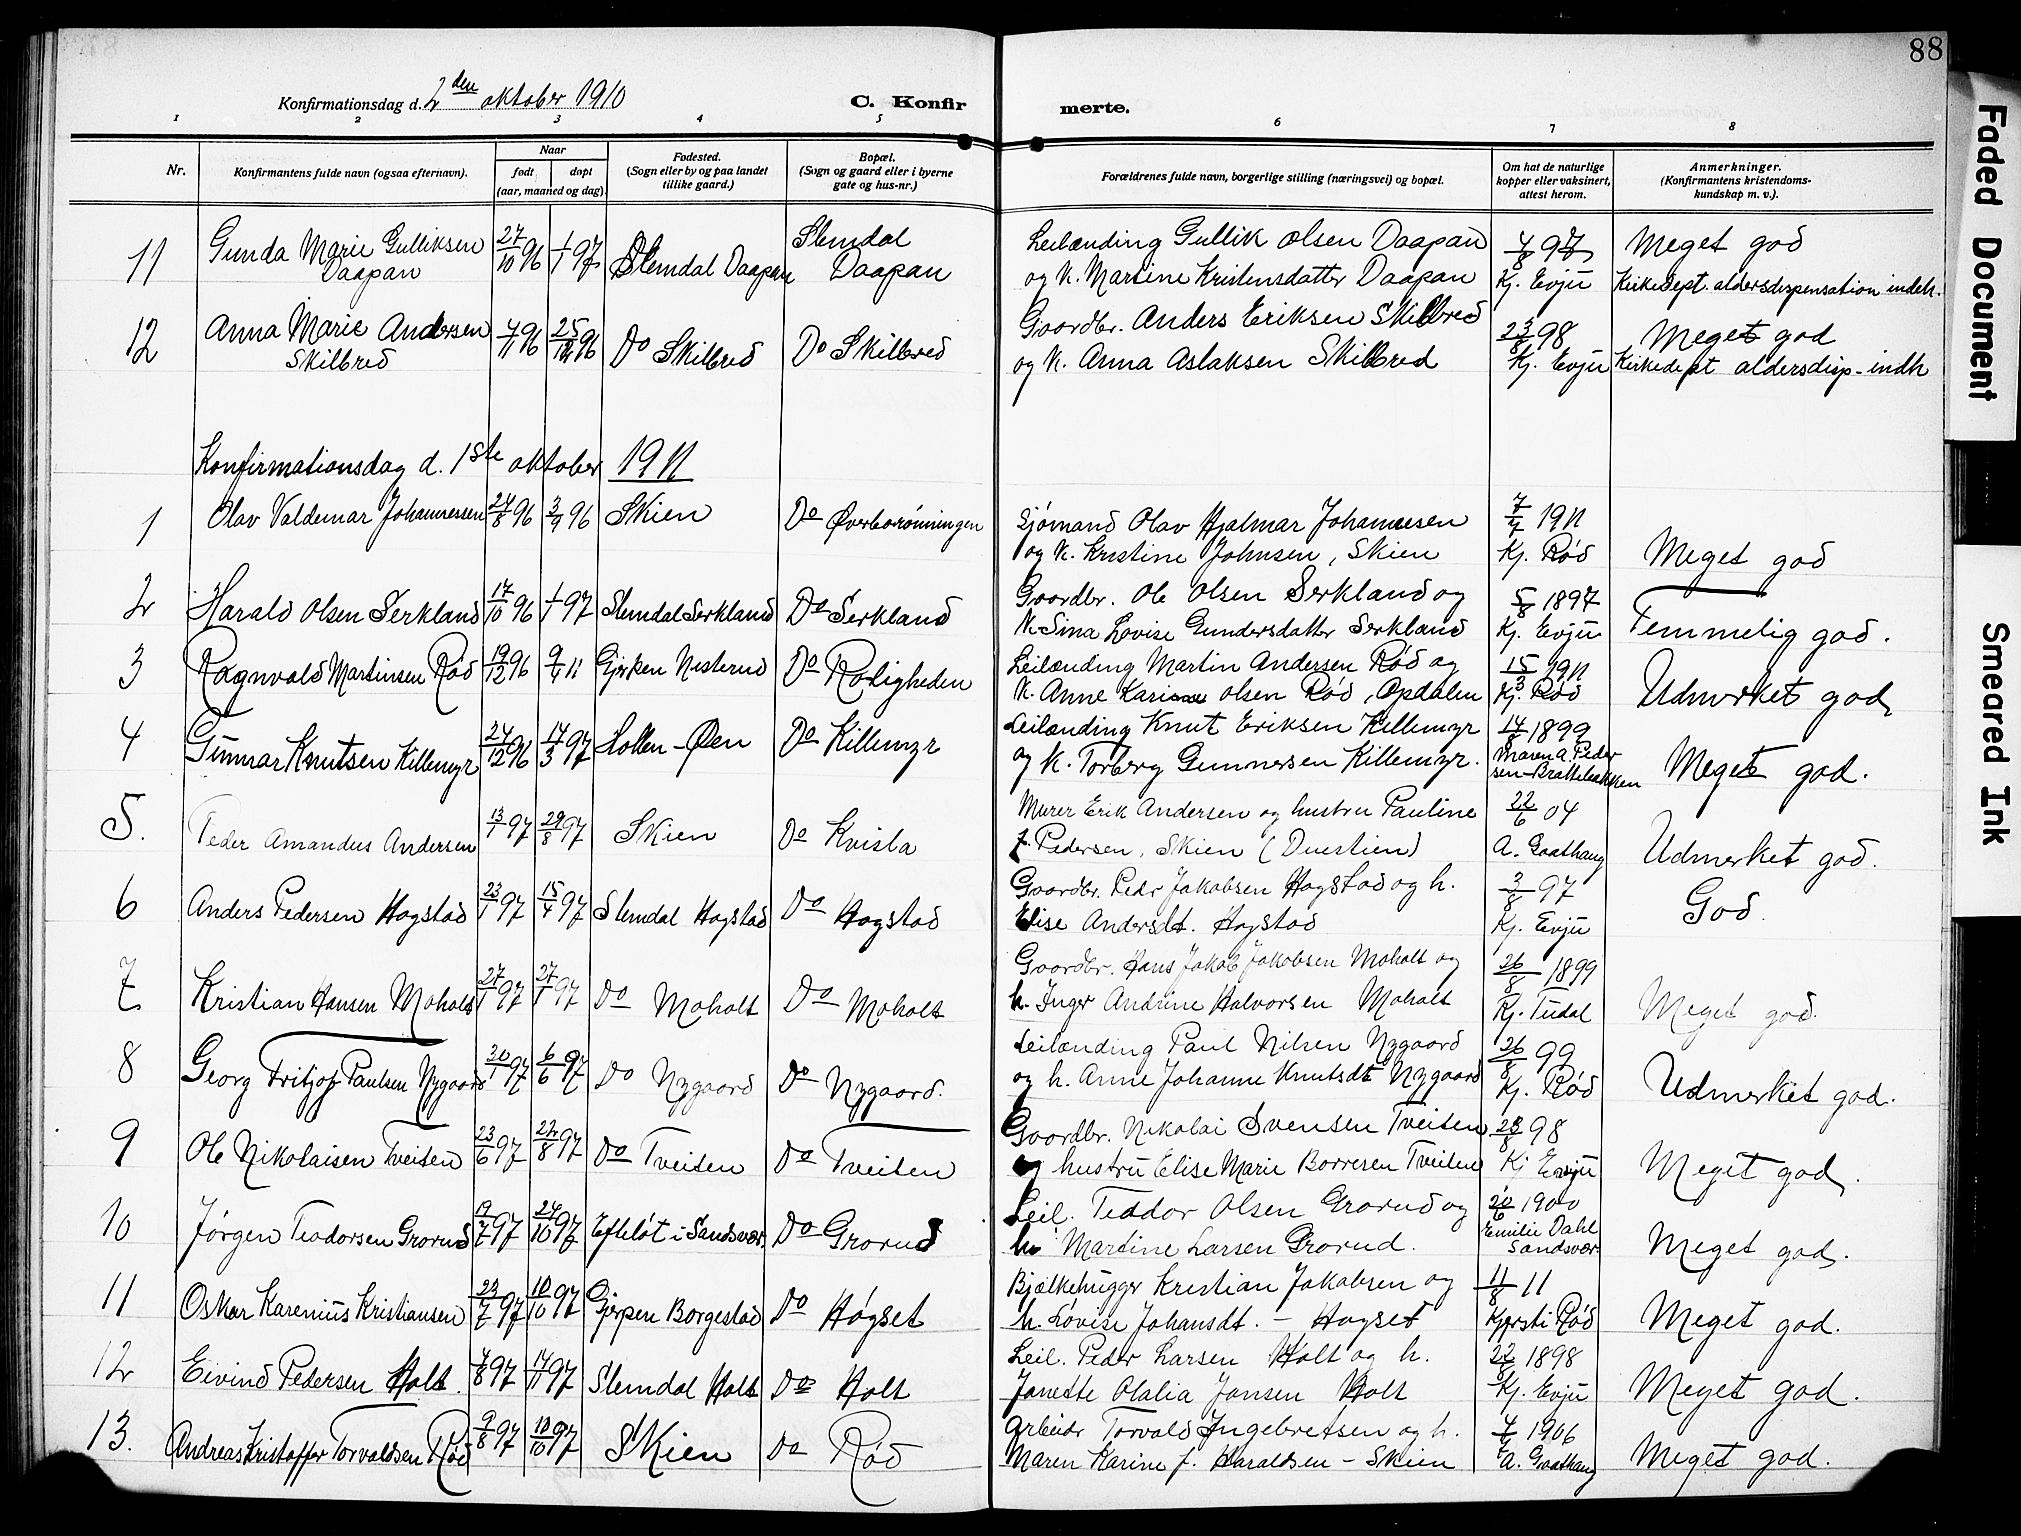 88
Konfirmationsdag d. 2den oktober 1910
C. Konfirmerte.
1 2 3 4 5 6 7 8
Nr.
Konfirmantens fulde navn (ogsaa efternavn).
Naar
født døpt
(aar, maaned og dag)
Fødested.
(Sogn eller by og paa landet
tillike gaard.)
Bopæl.
(Sogn og gaard eller i byerne
gate og hus-nr.)
Forældrenes fulde navn, borgerlige stilling (næringsvei) og bopæl.
Om hat de naturlige
kopper eller vaksinert,
attest herom.
Anmerkninger.
(Konfirmantens kristendoms-
kundskap m. v.).
11 Gunda Marie Gulliksen Daapan 27/10 96 1/1 97 Slemdal Daapan Slemdal Daapan Leilænding Gullik Olsen Daapan 4/8 97 Meget god
og K. Martine Kristensdatter Daapan Kj. Evju Kirkedept. aldersdispensation indh.
12 Anna Marie Andersen Skilbred 4/11 96 25/12 96 Do Skilbred Do Skilbred Gaardbr. Anders Eriksen Skilbred 23/8 98 Meget god
og K. Anna Aslaksen Skilbred Kj. Evju Kirkedept aldersdisp- indh
Konfirmationsdag d. 1ste oktober 1911
1 Olav Valdemar Johannessen 24/8 96 3/9 96 Skien Do Øverbørønningen Sjømand Olav Hjalmar Johannesen 7/7 1911
og K. Kristine Johnsen, Skien Kj. Rød Meget god
2 Harald Olsen Serkland 17/10 96 1/1 97 Slemdal Serkland Do Serkland Gaardbr. Ole Olsen Serkland og 5/8 1897
K Sina Lovise Gundersdatter Serkland Kj. Evju Temmelig god.
3 Ragnvald Martinsen Rød 19/12 96 9/4 11 Nesterud Do Roligheden Leilænding Martin Andersen Rød og 15/3 1911
K. Anne Karine Olsen Rød, Opdalen Kj. Rød Udmerket god
4 Gunnar Knutsen Killemyr 24/12 96 14/3 97 Hollen-Øen Do Killemyr Leilænding Knut Eriksen Killemyr 14/8 1899
og K. Torberg Gunnersen Killemyr. Maren A. Peder
sen-Bratteleakken Meget god.
5. Peder Amandus Andersen 13/1 97 29/8 97 Skien Do Kvisla Murer Erik Andersen og hustru Pauline 22/6 04
f. Pedersen, Skien (Duestien) A. Gaathaug Udmerket god.
6 Anders Pedersen Hogstad 23/1 97 15/4 97 Slemdal Hogstad Do Hogstad Gaardbr. Pedr Jakobsen Hogstad og h. 3/8 97
Elise Andersdt. Hogstad Kj. Evju God.
7 Kristian Hansen Moholt 27/1 97 27/ 97 Do Moholt Do Moholt Gaardbr. Hans Jakob Jakobsen Moholt og 26/8 1899
h. Inger Andrine Halvorsen Moholt Kj. Tudal Meget god.
8 Georg Fritjof Paulsen Nygaard 30/1 97 6/6 97 Do Nygaard Do Nygaard. Leilænding Paul Nilsen Nygaard 26/8 99
og h. Anne Johanne Knutsdt Nygaard Kj. Rød Udmerket god.
9 Ole Nikolaisen Tveiten 23/6 97 22/8 97 Do Tveiten Do Tveiten Gaardbr. Nikolai Svensen Tveiten 23/8 98
og hustru Elise Marie Borresen Tveiten Kj Evju Meget god.
10 Jørgen Teodorsen Grorud 19/7 97 24/10 97 Efteløt i Sandsvær. Do Grorud Leil. Teodor Olsen Grorud og 20/6 1900
h. Martine Larsen Grorud. Emilie Dahl
Sandsvær Meget god.
11 Oskar Karenius Kristiansen 23/7 97 10/10 97 Gjerpen Borgestad Do Høgset Bjelkehugger Kristian Jakobsen og 11/8 11
h. Lovise Johansdt. - Hogset Kjersti Rød Meget god.
12 Eivind Pedersen Holt. 4/8 97 14/11 97 Slemdal Holt Do Holt Leil. Peder Larsen Holt og h. 22/8 1898
Janette Olalia Jansen Holt Kj. Evju Meget god.
13. Andreas Kristoffer Torvaldsen Rød 9/8 97 10/10 97 Skien Do Rød Arbeider Torvald Ingebretsen og h. 1906
Maren Karine f. Haraldsen - Skien A. Gaathaug Meget god.
Faded Document
Smeared Ink